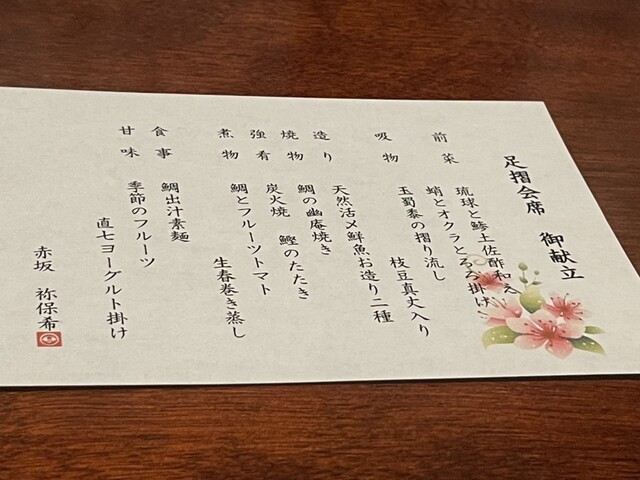 足摺会席　御献立
前菜　琉球と鯵土佐酢和え
蛸とオクラとろろ掛け
吸物　玉蜀黍の摺り流し
枝豆真丈入り
造り　天然活〆鮮魚お造り二種
焼物　鯛の幽庵焼き
強肴　炭火焼　鰹のたたき
煮物　鯛とフルーツトマト
生春巻き蒸し
食事　鯛出汁素麺
甘味　季節のフルーツ
直七ヨーグルト掛け
赤坂　祢保希